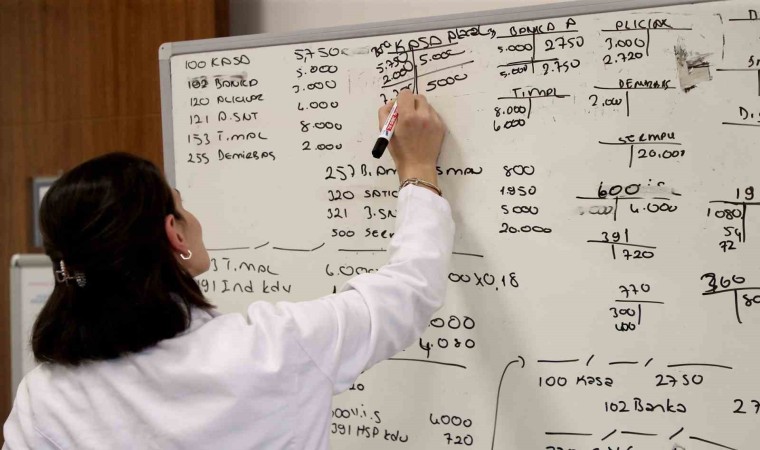 100 KASA 5,750
102 BANKA 5.000
120 ALICILAR 3.000
121 A.SNT 4.000
153 T.MAL 8.000
255 Demirbaş 2.000
257 B. 800
320 SATIC 1.950
321 B.SN 5000
500 SER 20.000
KASA
5.750 5.000
2.000
5000
BANKA A
5.000 2750
5.000 2.750
T.MAL
8.000
6.000
ALICILAR
3.000
2.720
DEMİRBAŞ
2.000
SERMAY
20.000
600
4.000
391
720
770
300
400
19
1080
54
72
360
80
3 T.MAL 6.00
191 Ind kdv
00x0,18
.000
4.080
20
4000
391 HSP kdv 720
100 Kasa 2750
102 Banka 27